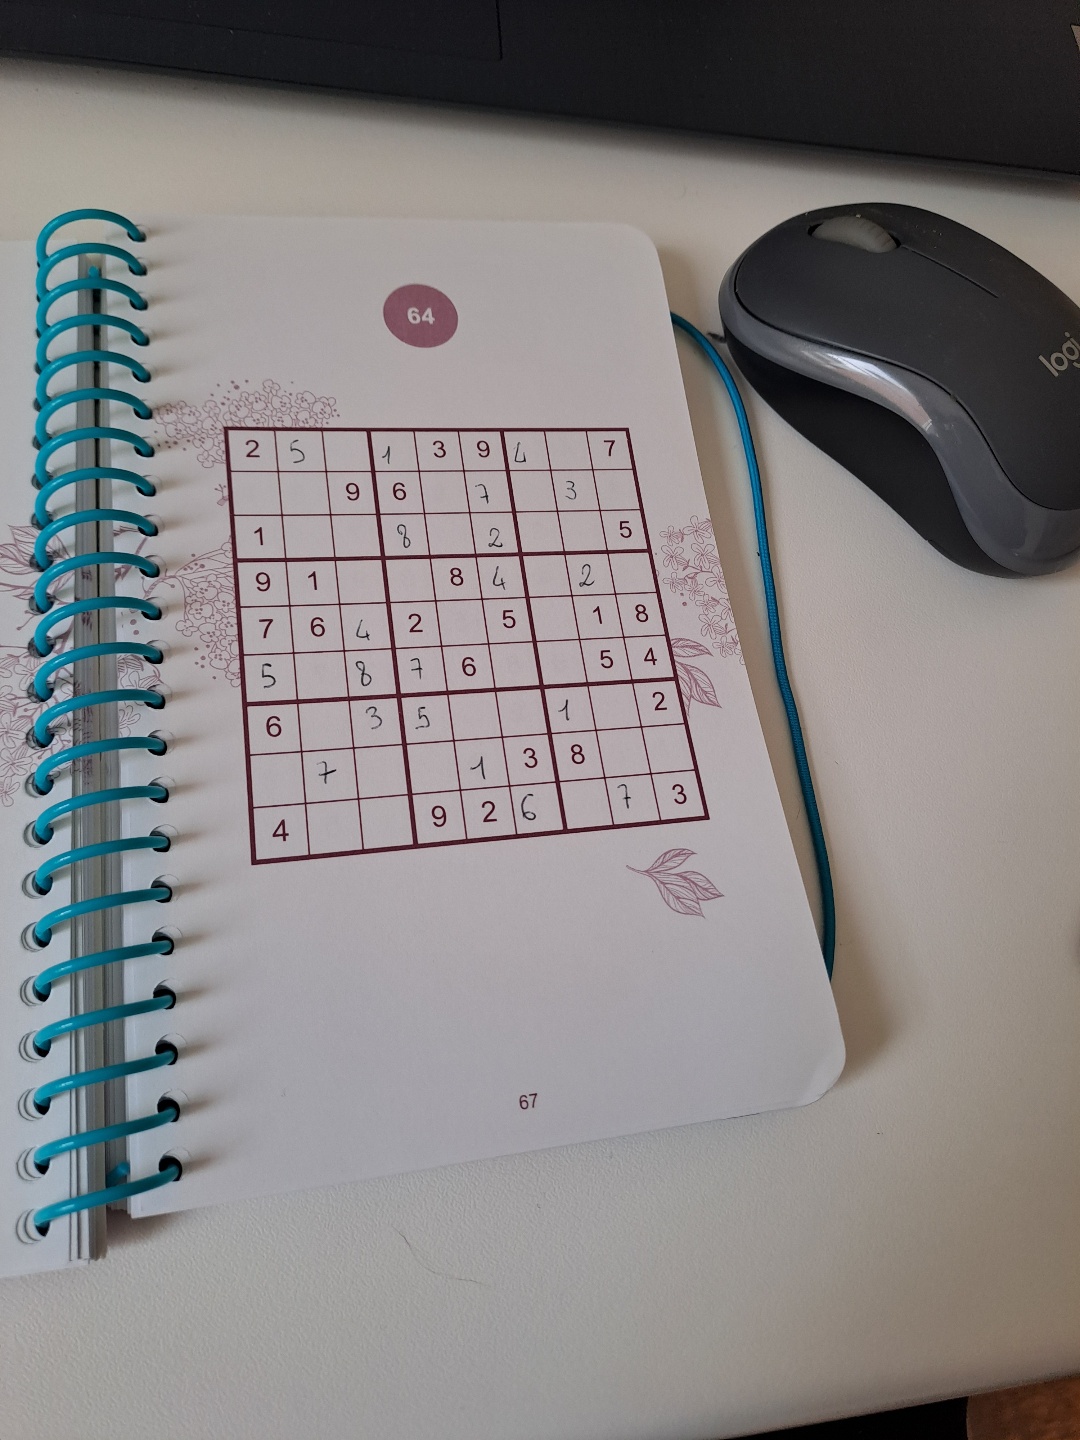 64
2 5 1 3 9 4 7
9 6 7 3
1 8 2 5
9 1 8 4 2
7 6 4 2 5 1 8
5 8 7 6 5 4
6 3 5 1 2
7 1 3 8
4 9 2 6 7 3
67
logi